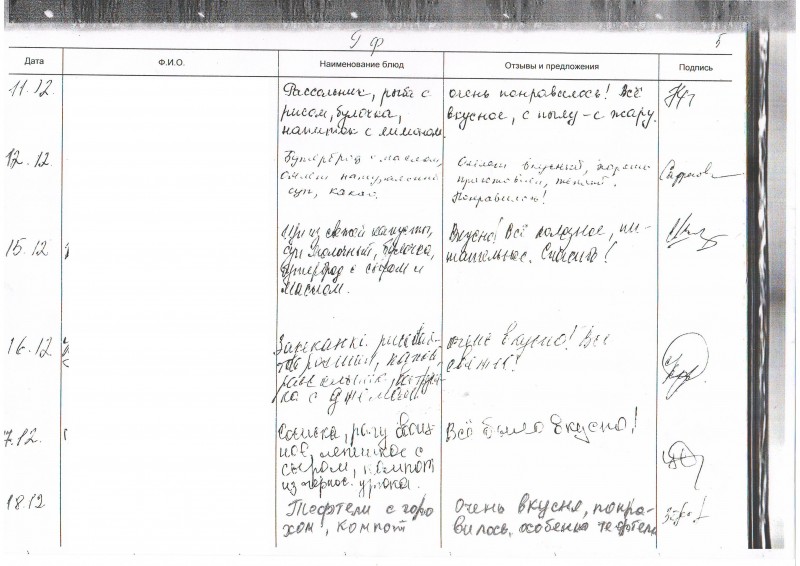 9 ф
5
Дата Ф.И.О. Наименование блюд Отзывы и предложения Подпись
11.12. Рассольник, рыба с
рисом, булочка,
напиток с лимоном.
очень понравилось! Всё
вкусное, с пылу-с жару.
12.12 Бутерброд с маслом,
омлет натуральный
суп, какао.
Омлет вкусный, хорошо
приготовлен, теплый.
Понравилось!
15.12 Щи из свежей капусты,
суп молочный, булочка,
бутерброд с сыром и
маслом.
Вкусно! Всё полезное, пи-
тательное. Спасибо!
16.12 Запеканка рисово-
творожная,
с джемом
очень вкусно! Все
свежее!
7.12. рагу
лепешкос с
сыром, компот
из чернос.
Всё было вкусно!
18.12 Тефтели с горо
хом, компот
Очень вкусно, понра-
вилось, особенно тефтели